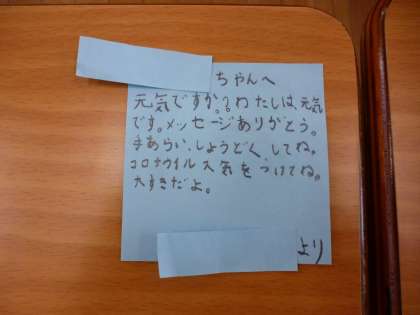 ちゃんへ
元気ですか。?わたしは、元気
です。メッセージありがとう。
手あらい、しょうどく、してね。
コロナウイルス気をつけてね。
大すきだよ。
より